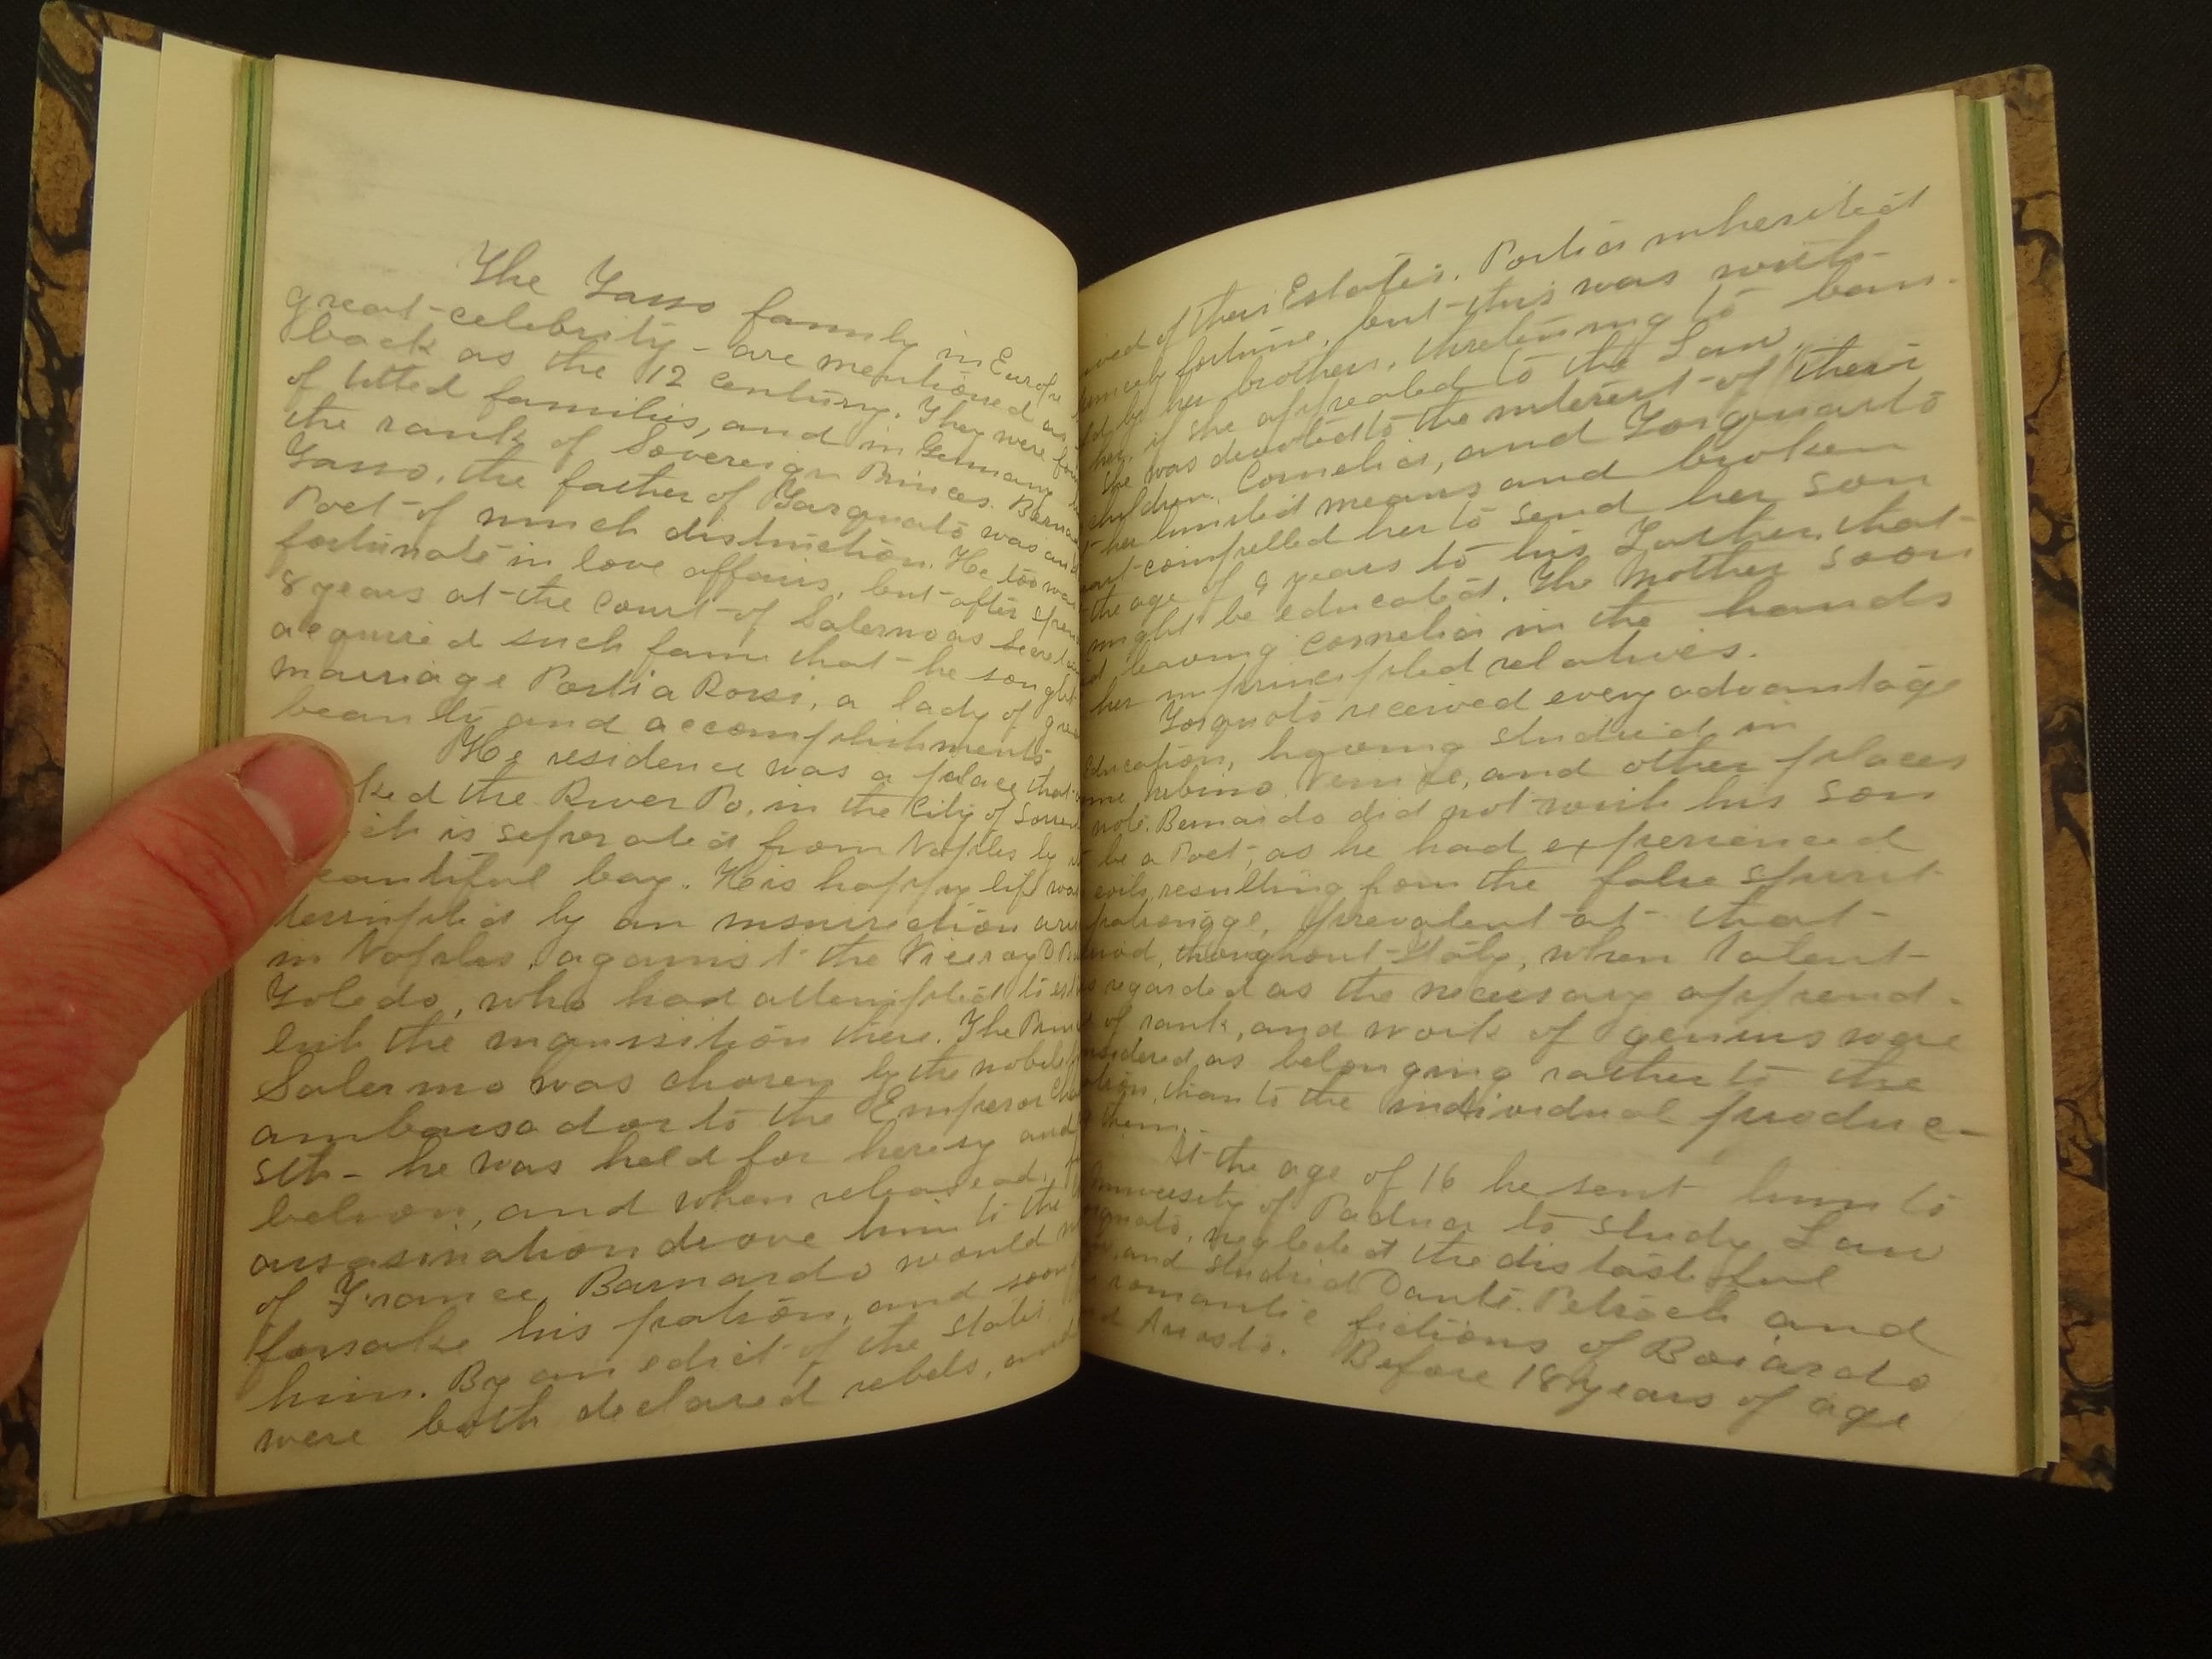 The Tasso family in Europe
great celebrity - are mentioned as
back as the 12 century. They were
of titled families, and in Germany
the rank of Sovereign Princes.
Tasso, the father of Torquato was an
Poet of much distinction. He too was
fortunate in love affairs, but after
8 years at the court of Salerno as
acquired such fame that he sought
marriage Portia Rossi, a lady of
beauty and accomplishments
His residence was a palace that
the River Po, in the City of
is seperated from Naples by
beautiful bay. His happy life was
by an insurrection
in Naples, against the Viceroy
Toledo, who had attempted to
lish the inquisition there. The
Salerno was chosen by the
ambassador to the Emperor
5th - he was held for heresy and
belion, and when released,
assasination drove him to the
of France, Barnardo would
forsake his patron, and soon
him. By an edict of the state
were both declared rebels, and
of their Estates. Portia inherited
fortune, but this was with-
by her brothers, threatning to ban-
her, if she appealed to the Law.
She was devoted to the interest of their
children, Cornelia, and Torquarto
her limited means and broken
compelled her to send her son
the age of 9 years to his Father, that
might be educated. The Mother soon
leaving Cornelia in the hands
her unprincipled relatives.
Torquato received every advantage
Education, having studied in
Urbino, Venice, and other places
note. Bernardo did not wish his son
be a Poet, as he had experienced
evils, resulting from the false spirit
patronage, prevalent at that
throughout Italy, when talent
regarded as the necessary append-
of rank, and work of genius were
as belonging rather to the
than to the individual produc-
them.
At the age of 16 he sent him to
University of Padua to study Law
neglected the distasteful
and studied Dante, Petrach and
romantic fictions of Boiardo
Ariosto. Before 18 years of age